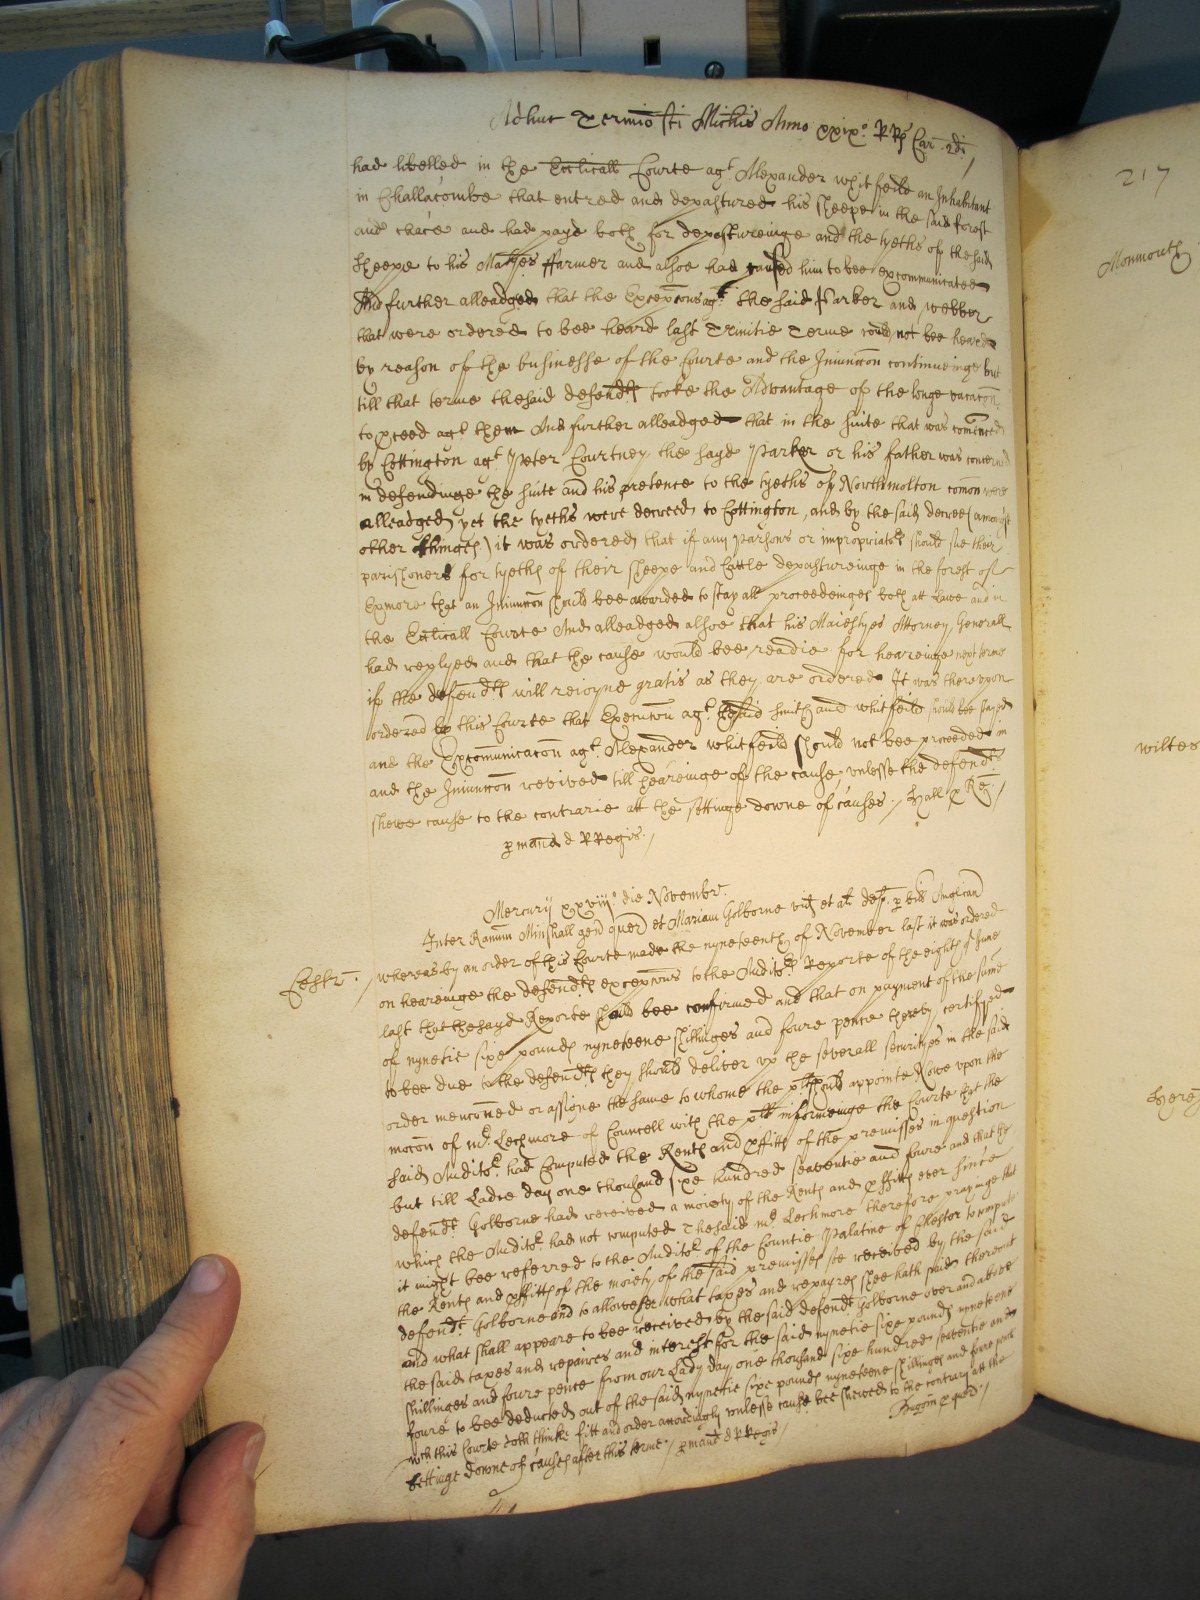 Adhuc Termio Sti Michis Anno xxix.o RRs Car. 2di
had libelled in the Ecclicall Courte agt Alexander Whitfeild an Inhabitant
in Challacombe that entred and depastured his sheepe in the said forest
and chace and had payd both for depastureinge and the tyeths of the said
sheepe to his Maties ffarmer and alsoe had caused him to bee excommunicated
And further alleadged that the Excepcons agt the said Parker and Webber
that were ordered to bee heard last Trinitie Terme could not bee heard
by reason of the businesse of the Courte and the Iniuncon continueinge but
till that terme the said defendts tooke the Advantage of the longe vacacon
to pceed agt them And further alleadged that in the suite that was comenced
by Cottington agt Peter Courtney the sayd Parker or his father was concerned
in defendinge the suite and his pretence to the tyeths of Northmolton comon were
alleadged yet the tyeths were decreed to Cottington, and by the said decree (amongst
other thinges) it was ordered that if any Parsons or impropriators should sue their
parishoners for tyeths of their sheepe and Cattle depastureinge in the forest of
Exmore that an Iniuncon should bee awarded to stay all proceedeinges both att Lawe and in
the Ecclicall Courte And alleadged alsoe that his Maiestyes Attorney Generall
had replyed and that the cause would bee readie for heareinge next terme
if the defendts will reioyne gratis as they are ordered It was thereupon
ordered by this Courte that Execucon agt the said Smith and Whitfeild should bee stayed
and the Excomunicacon agt Alexander Whitfeild should not bee proceeded in
and the Iniuncon revived till heareinge of the cause, unlesse the defendts
shewe cause to the contrarie att the settinge downe of causes./ Hall p Reg./
p mand d RRegis./
Mercurij xxviij.o die Novembr.
Inter Ranum Minshall gen quer et Mariam Golborne vid et al deft p bill Anglican
217
Monmouth
Wiltes
Cestr. / Whereas by an order of this Courte made the nyneteenth of November last it was ordered
on heareinge the defendts excepcons to the Auditors Reporte of the eighth of June
last that the sayd Reporte should bee confirmed and that on payment of the sume
of nynetie sixe pounds nyneteene shillinges and foure pence thereby certified
to bee due to the defendts they should deliver up the severall securityes in the said
order mencioned or assigne the same to whome the plt should appointe Nowe upon the
mocon of Mr. Lechmore of Councell with the plt informeinge the Courte that the
said Auditor had computed the Rents and pffitts of the premisses in question
but till Ladie day one thousand sixe hundred seaventie and foure and that the
defendt Golborne had received a moiety of the Rents and pffitts ever since
which the Auditor had not computed The said Mr Lechmore therefore prayinge that
it might bee referred to the Auditor of the Countie Palatine of Chester to compute
the Rents and pffitts of the moiety of the said premisses soe received by the said
defendt Golborne and to allowe her what taxes and repayres shee hath paid thereout
and what shall appeare to bee received by the said defendt Golborne over and above
the said taxes and repaires and interest for the said nynetie sixe pounds nyneteene
shillinges and foure pence from our Lady day one thousand sixe hundred seaventie and
foure to bee deducted out of the said nynetie sixe pounds nyneteene shillinges and foure pence
wch this Courte doth thinke fitt and order accordingly unlesse cause bee shewed to the contrary att the
settinge downe of causes after this terme./ p mand d RRegis/